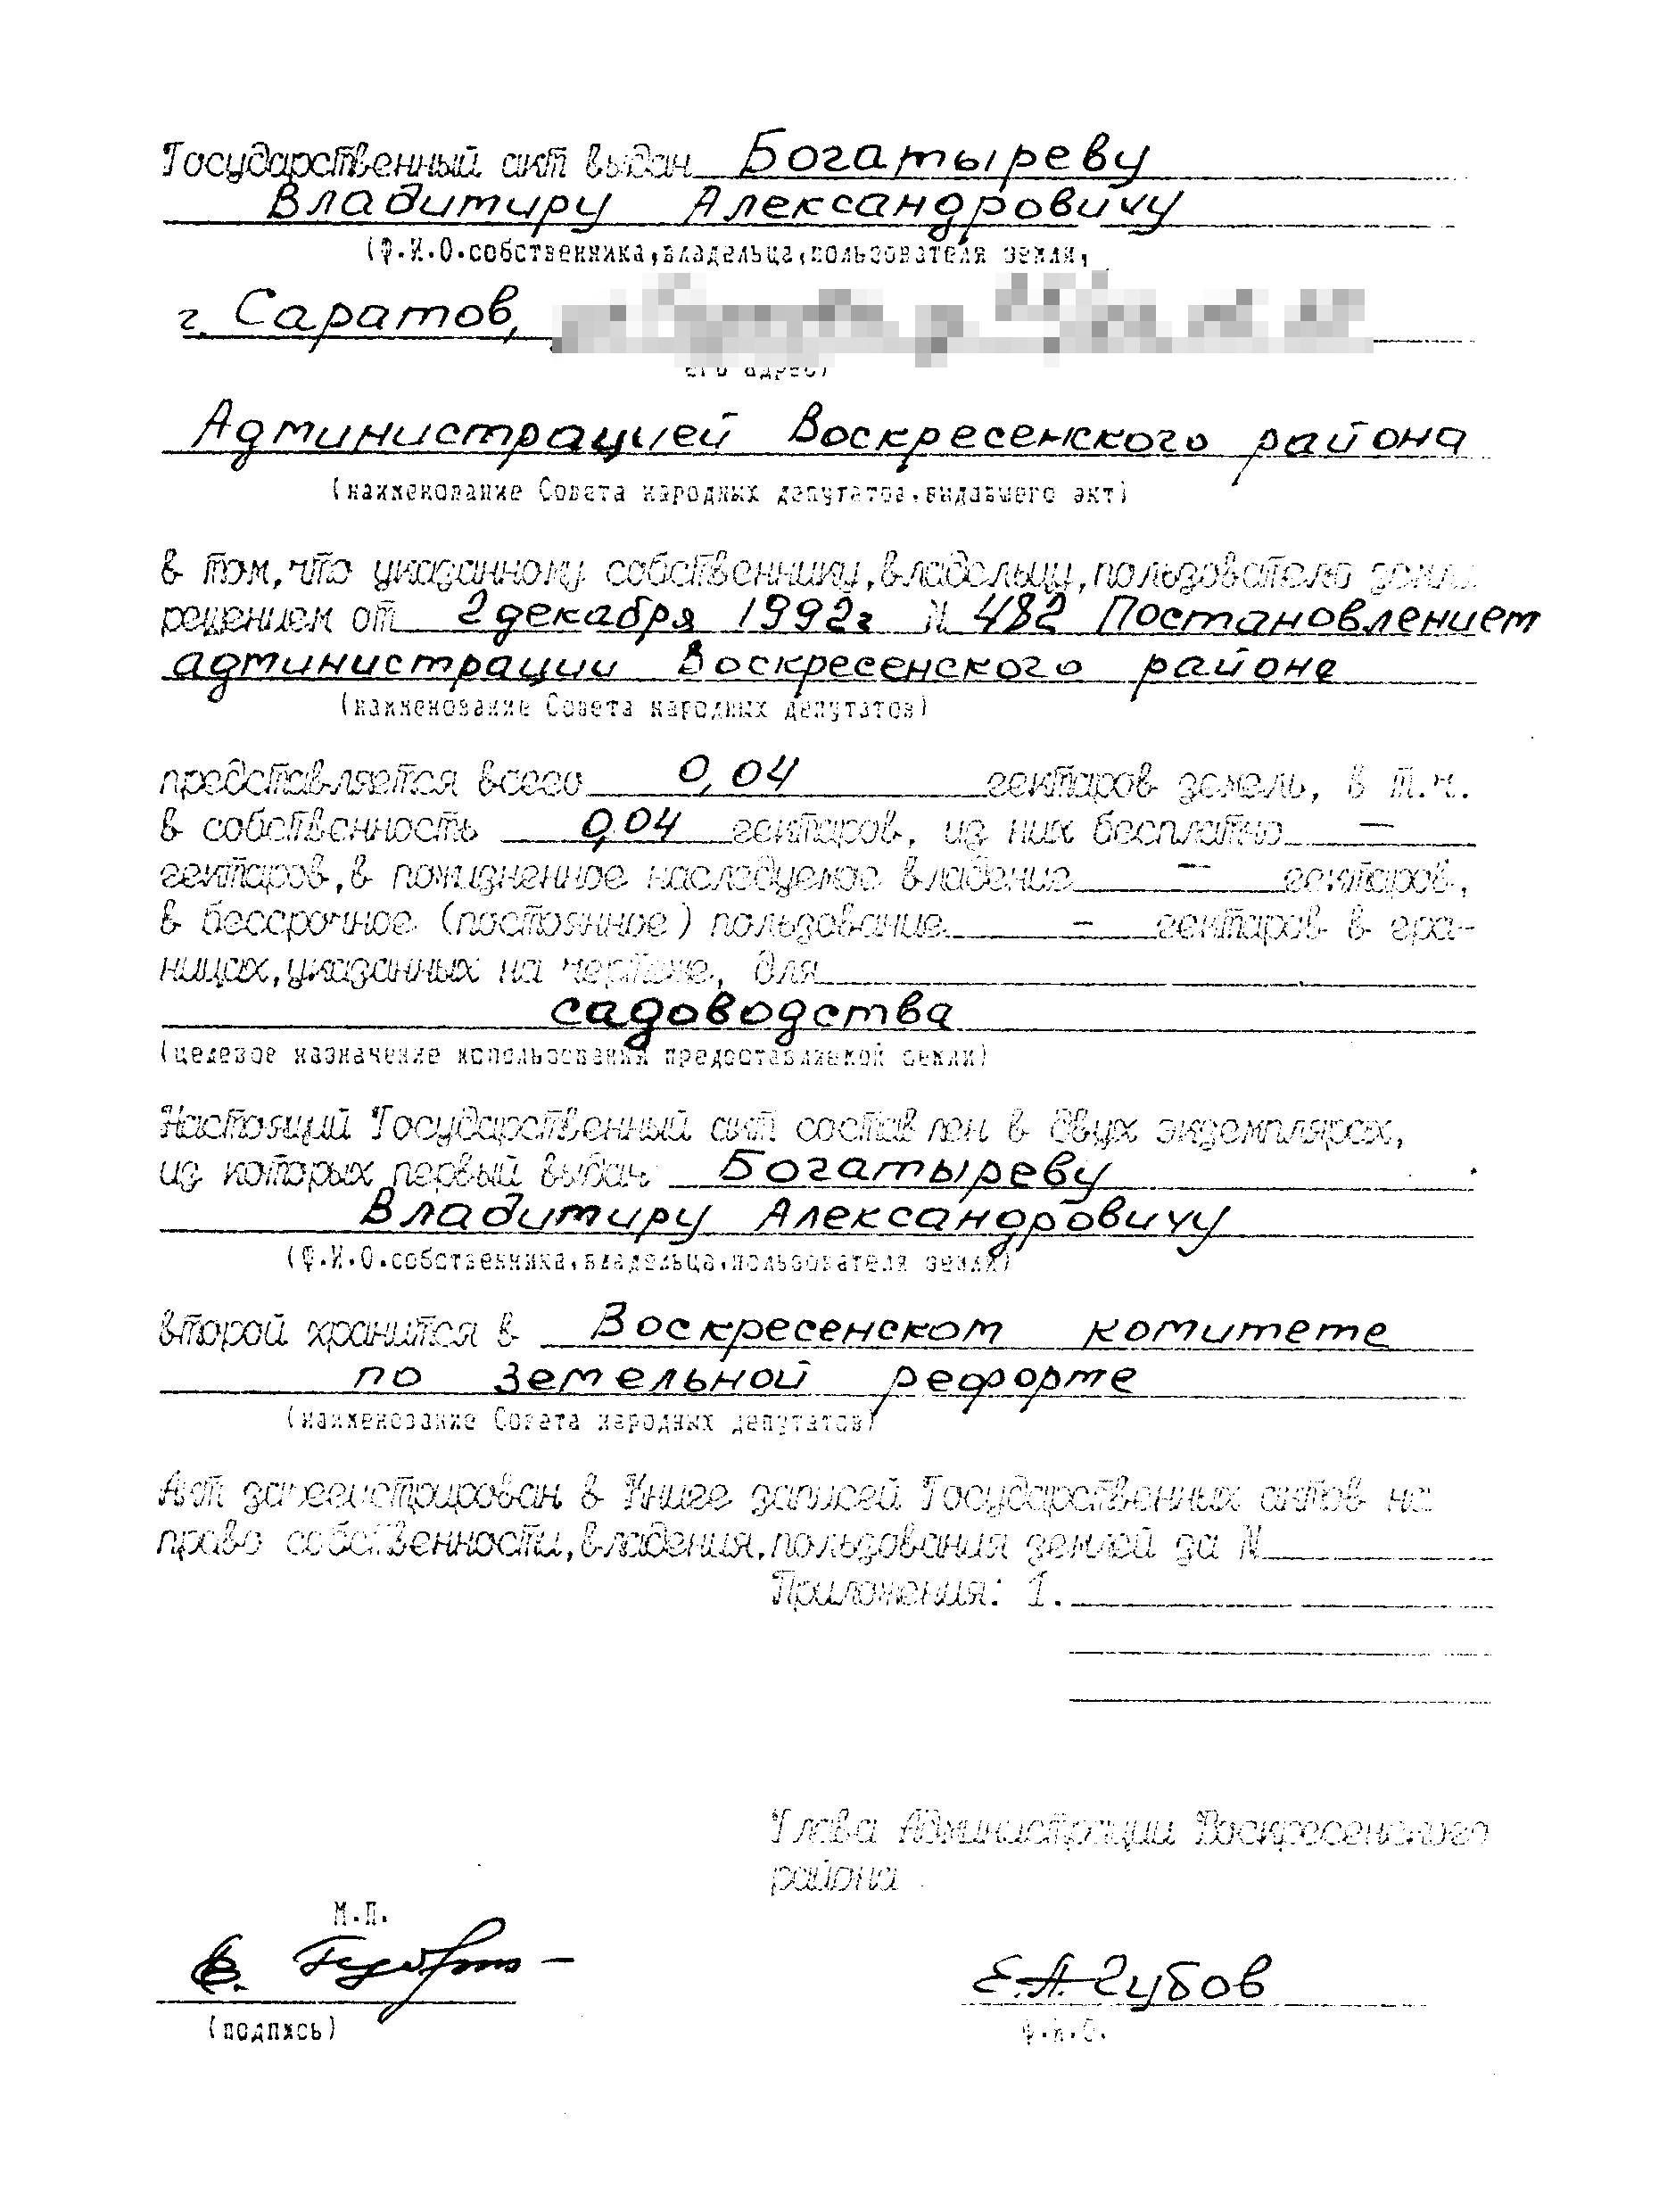 Государственный акт выдан Богатыреву
Владимиру Александровичу
(Ф.И.О.собственника,владельца,пользователя земли,
г. Саратов,
его адрес)
Администрацией Воскресенского района
(наименование Совета народных депутатов,выдавшего акт)
в том,что указанному собственнику,владельцу,пользователю земли
решением от 2 декабря 1992г N 482 Постановлением
администрации Воскресенского района
(наименование Совета народных депутатов)
представляется всего 0,04 гектаров земель, в т.ч.
в собственность 0,04 гектаров, из них бесплатно –
гектаров,в пожизненное наследуемое владение – гектаров,
в бессрочное (постоянное) пользование – гектаров в гра-
ницах,указанных на чертеже, для
садоводства
(целевое назначение использования предоставляемой земли)
Настоящий Государственный акт составлен в двух экземплярах,
из которых первый выдан Богатыреву
Владимиру Александровичу
(Ф.И.О.собственника,владельца,пользователя земли)
второй хранится в Воскресенском комитете
по земельной реформе
(наименование Совета народных депутатов)
Акт зарегистрирован в Книге записей Государственных актов на
право собственности,владения,пользования землей за N
Приложения: 1.
Глава Администрации Воскресенского
района
М.П.
Е.А. Губов
(подпись)
Ф.И.О.